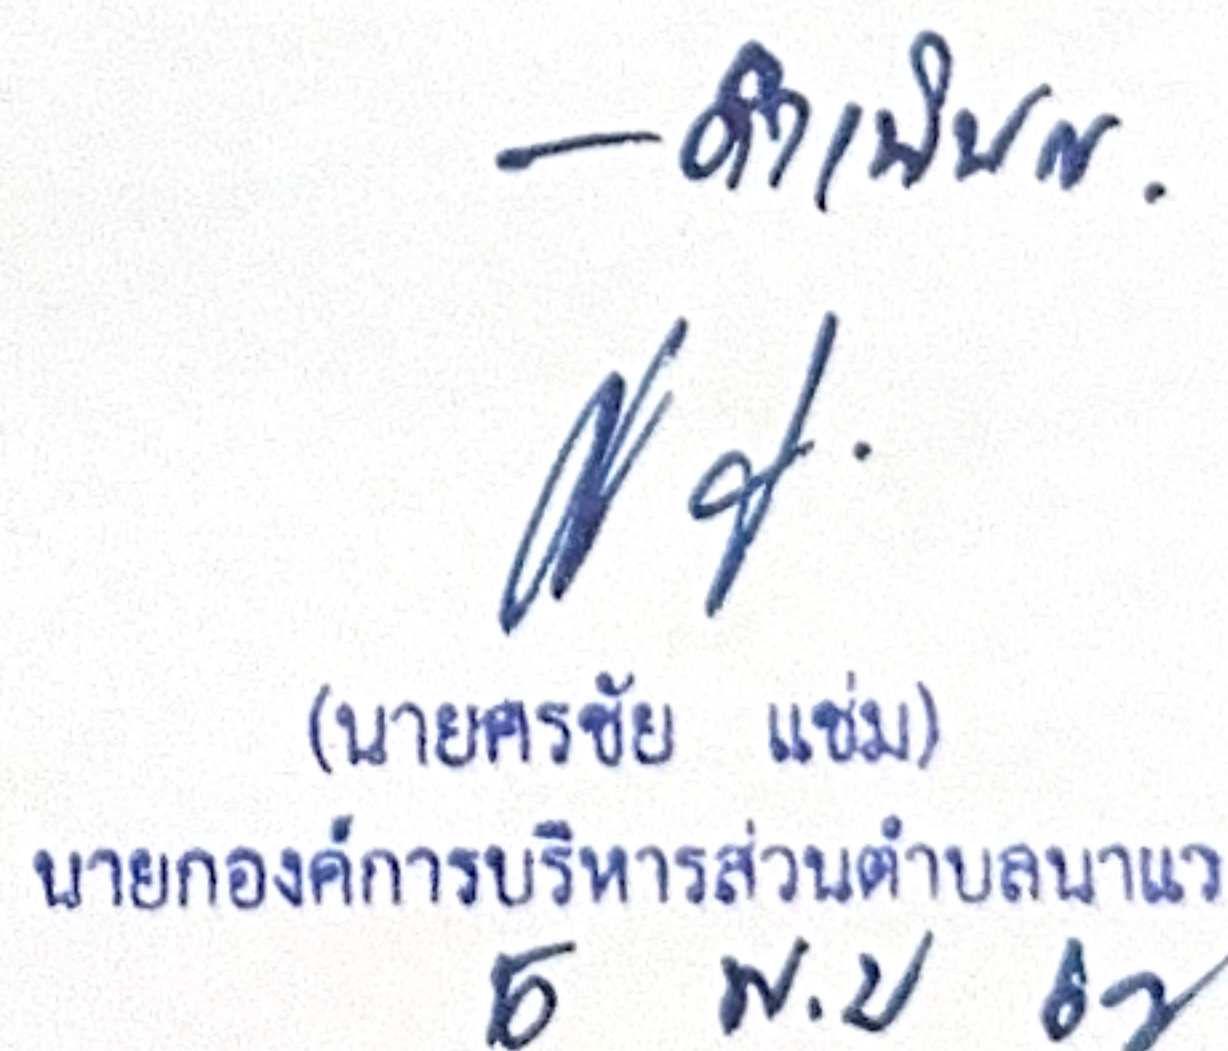 - ดำเนินการ
(นายศรชัย แช่ม)
นายกองค์การบริหารส่วนตำบลนาแว
พ.ย